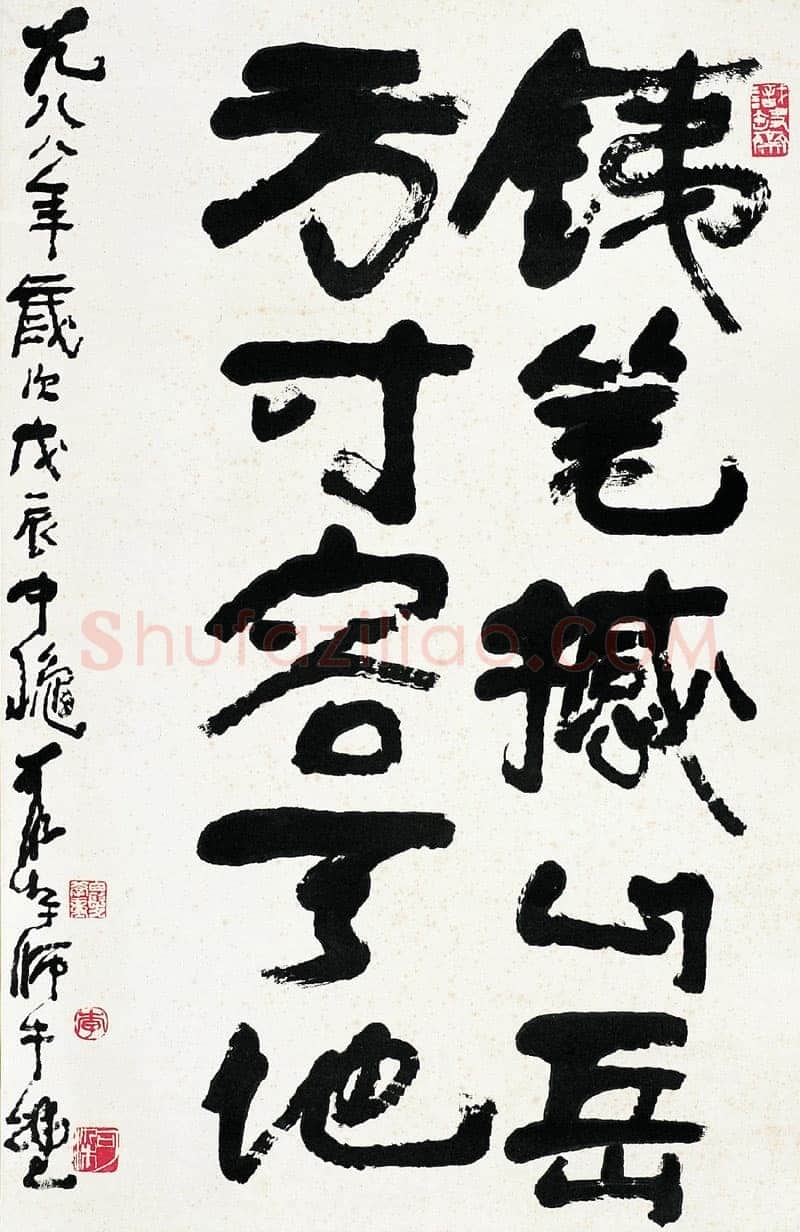 銕笔撼山岳
方寸容天地
一九八八年歲次戊辰中龝可染師牛堂
Shufaziliao.COM